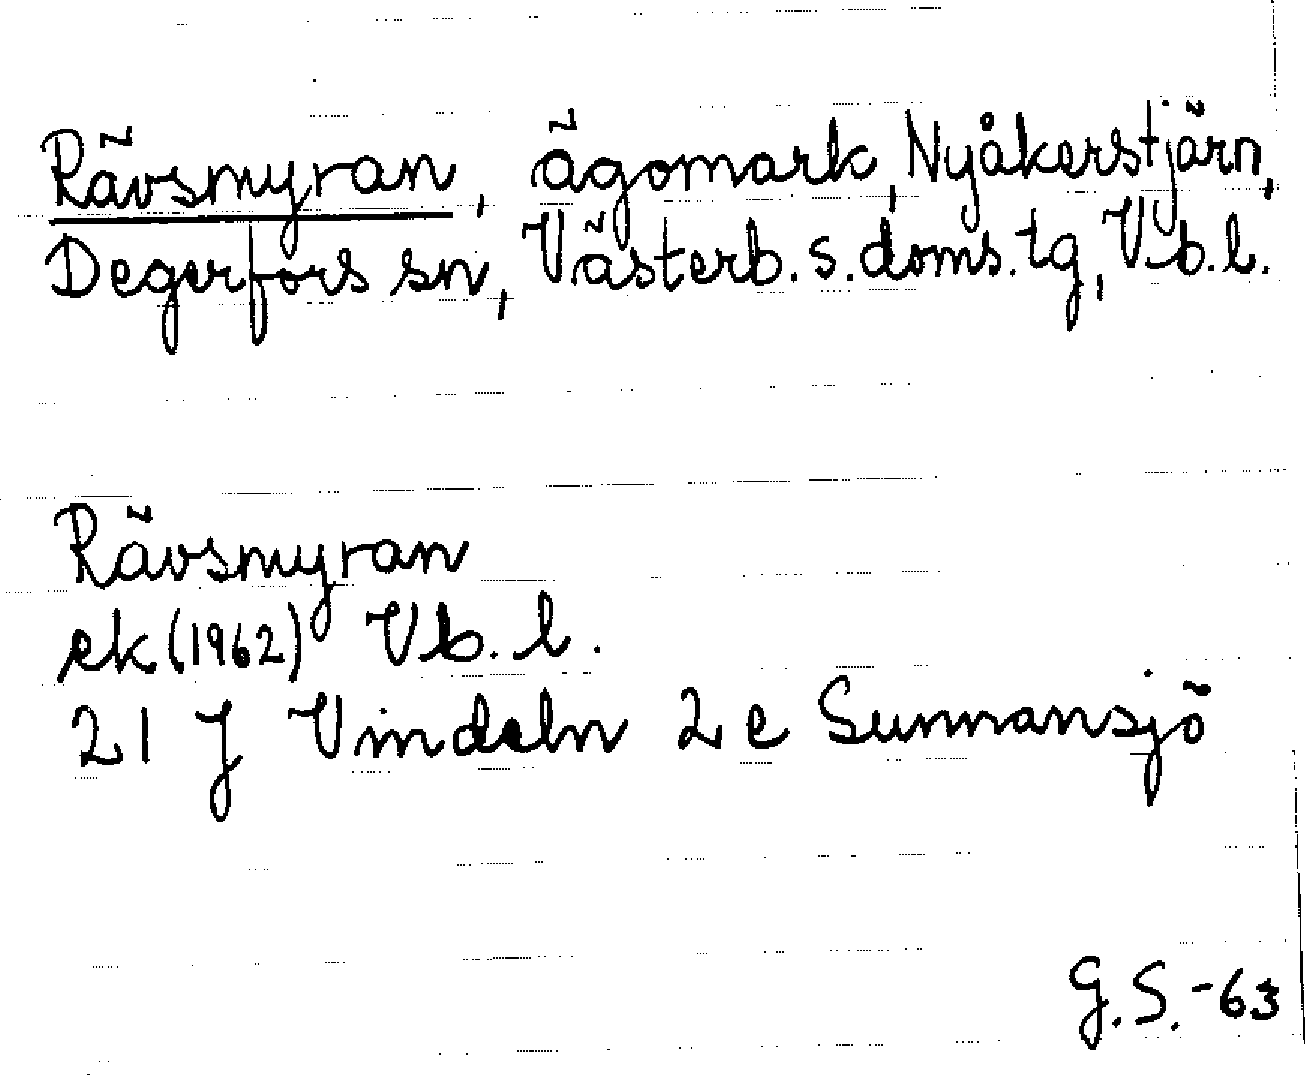 Rävsmyran, ägomark, Nyåkerstjärn,
Degerfors sn, Västerb. s. doms. tg, Vb. l.
Rävsmyran
ek (1962) Vb. l.
21 J Vindeln 2 e Sunnansjö
G. S. -63